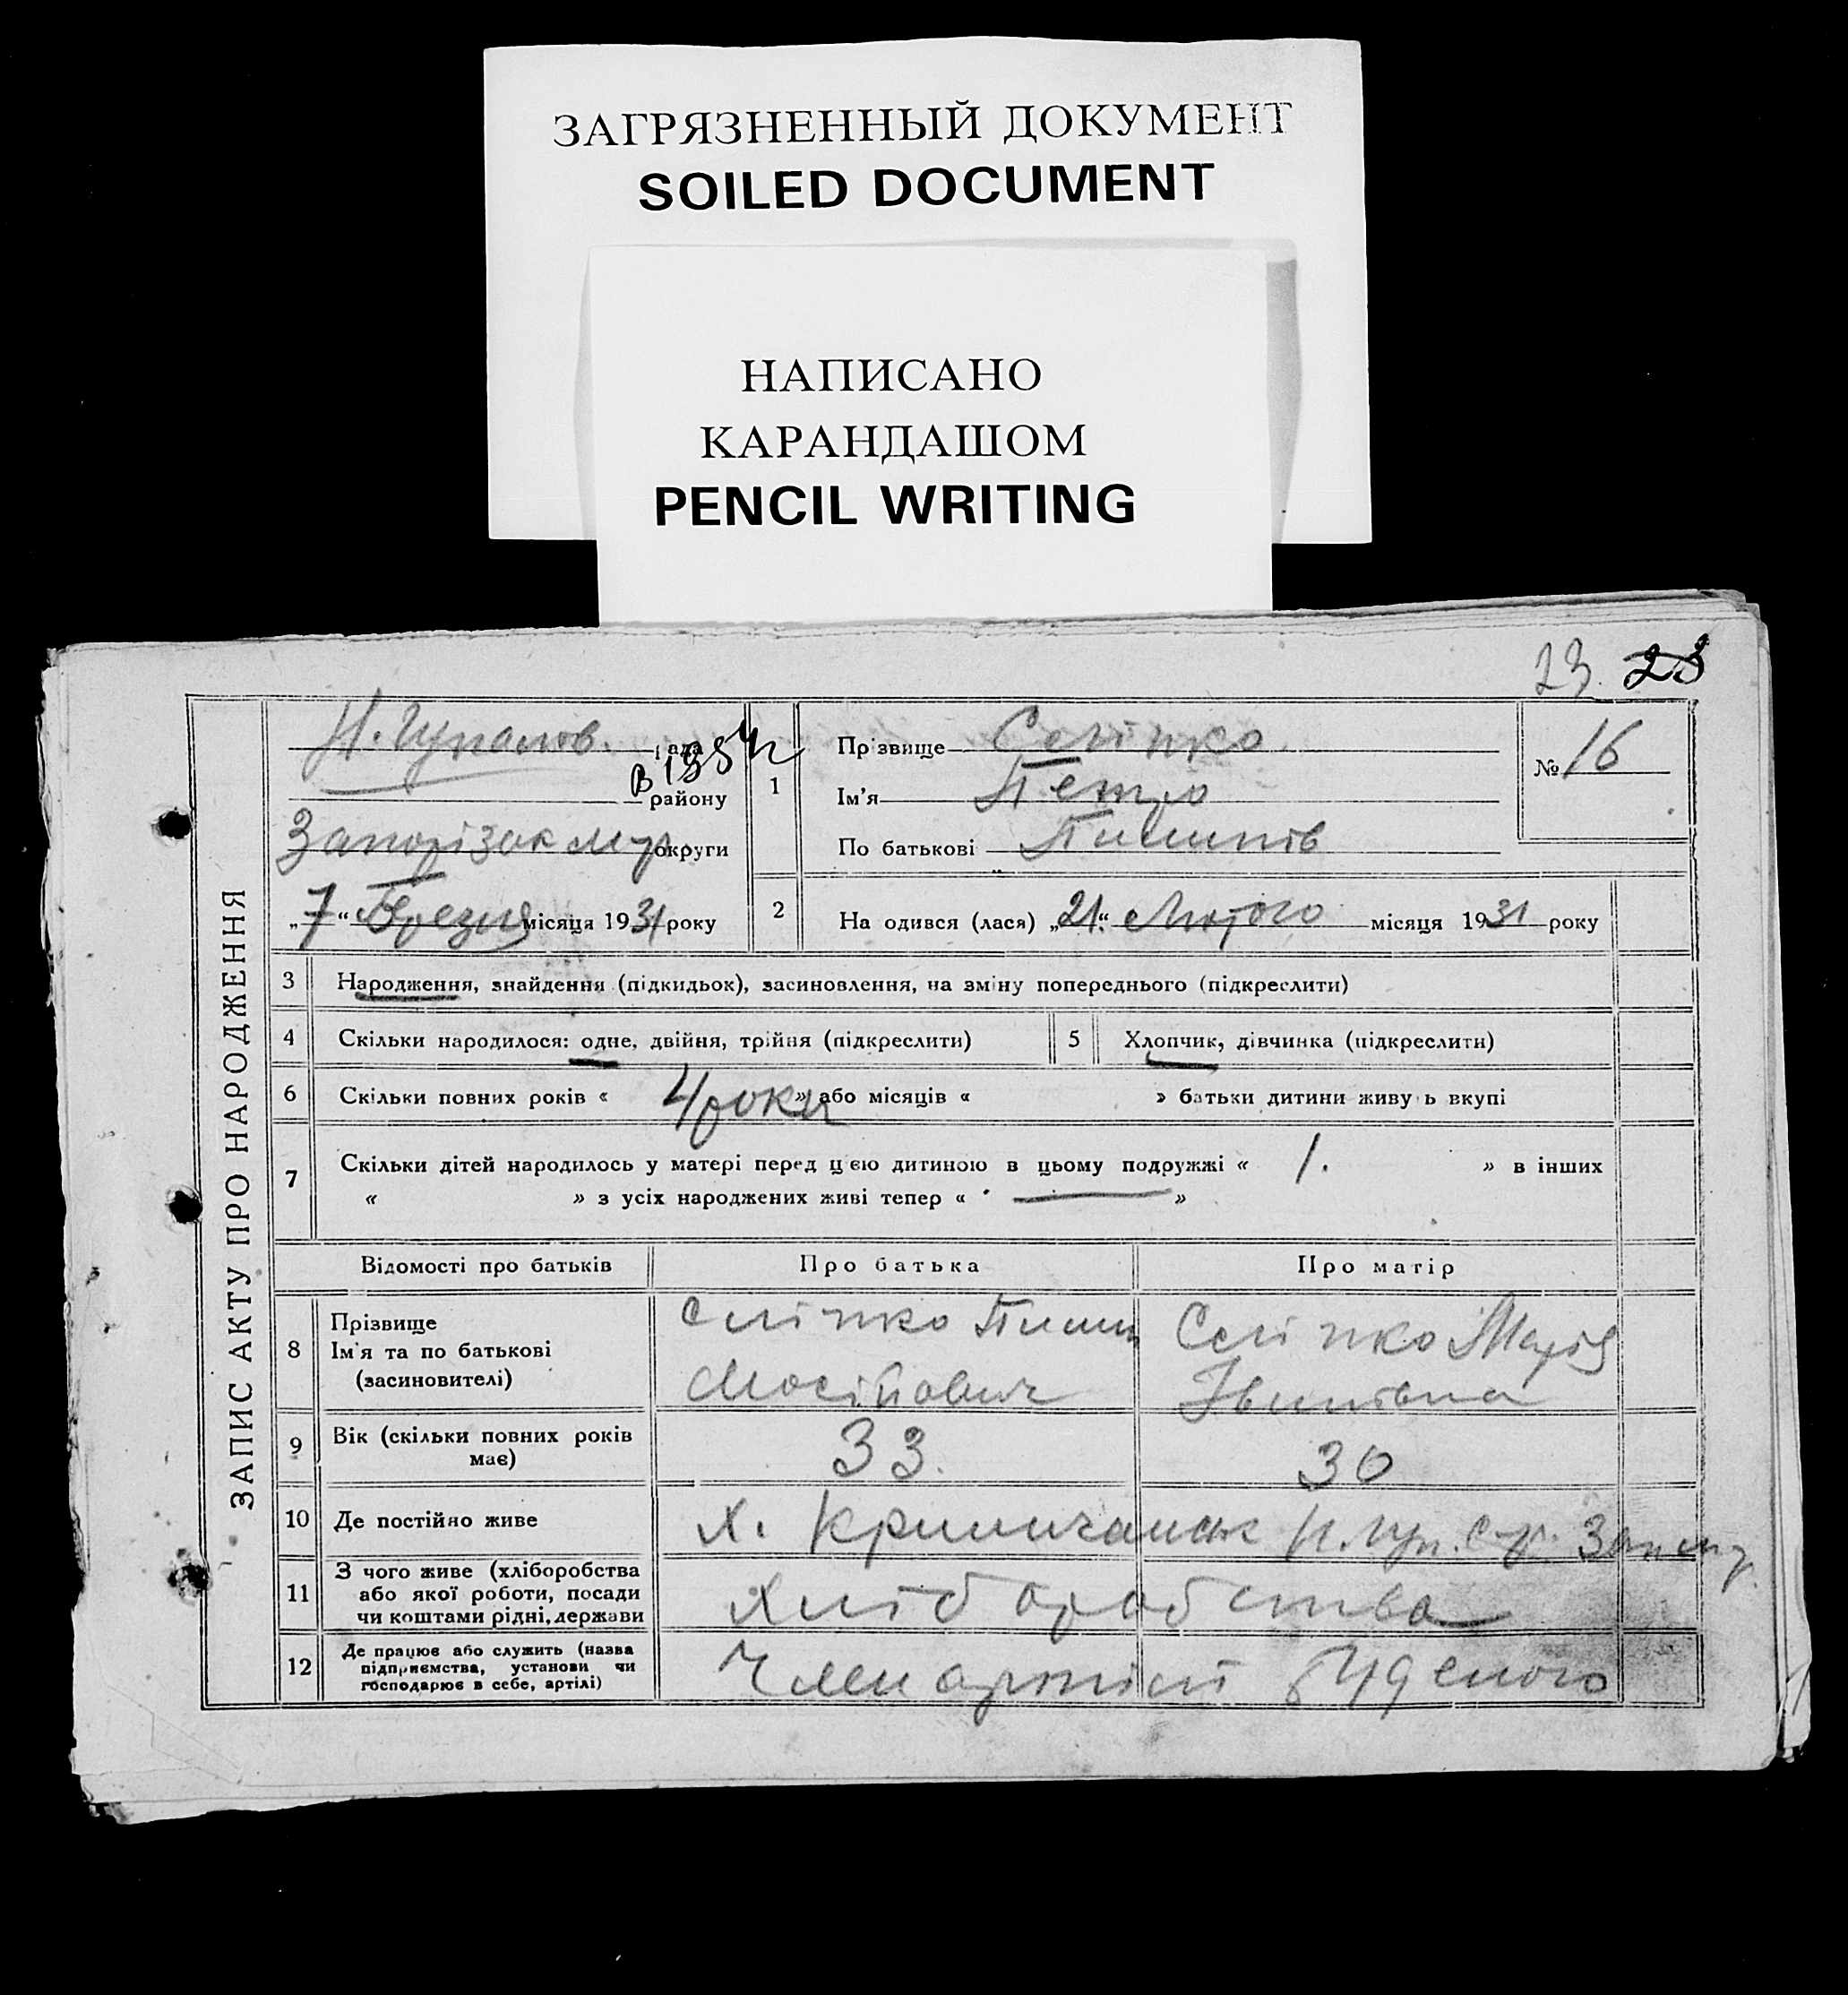 ЗАГРЯЗНЕННЫЙ ДОКУМЕНТ
SOILED DOCUMENT
НАПИСАНО
КАРАНДАШОМ
PENCIL WRITING
23. 23
ЗАПИС АКТУ ПРО НАРОДЖЕННЯ
Н. Гупалов. рада
району
округи
„7“ Березня місяця 1931 року
1
Прізвище Сліпко
Ім'я Петро
По батькові
№ 16
2 На одився (лася) „21“ Лютого місяця 1931 року
3 Народження, знайдення (підкидьок), засиновлення, на зміну попереднього (підкреслити)
4 Скільки народилося: одне, двійня, трійня (підкреслити)
5 Хлопчик, дівчинка (підкреслити)
6 Скільки повних років « 4 роки » або місяців « » батьки дитини живу ь вкупі
7 Скільки дітей народилось у матері перед цією дитиною в цьому подружжі « 1. » в інших
« » з усіх народжених живі тепер « »
Відомості про батьків Про батька Про матір
8 Прізвище
Ім'я та по батькові
(засиновителі)
Сліпко
Сліпко Марія
9 Вік (скільки повних років
має)
33. 30
10 Де постійно живе х.
11 З чого живе (хліборобства
або якої роботи, посади
чи коштами рідні, держави
Хліборобства
12 Де працює або служить (назва
підприємства, установи чи
господарює в себе, артілі)
Член артілі Буденого